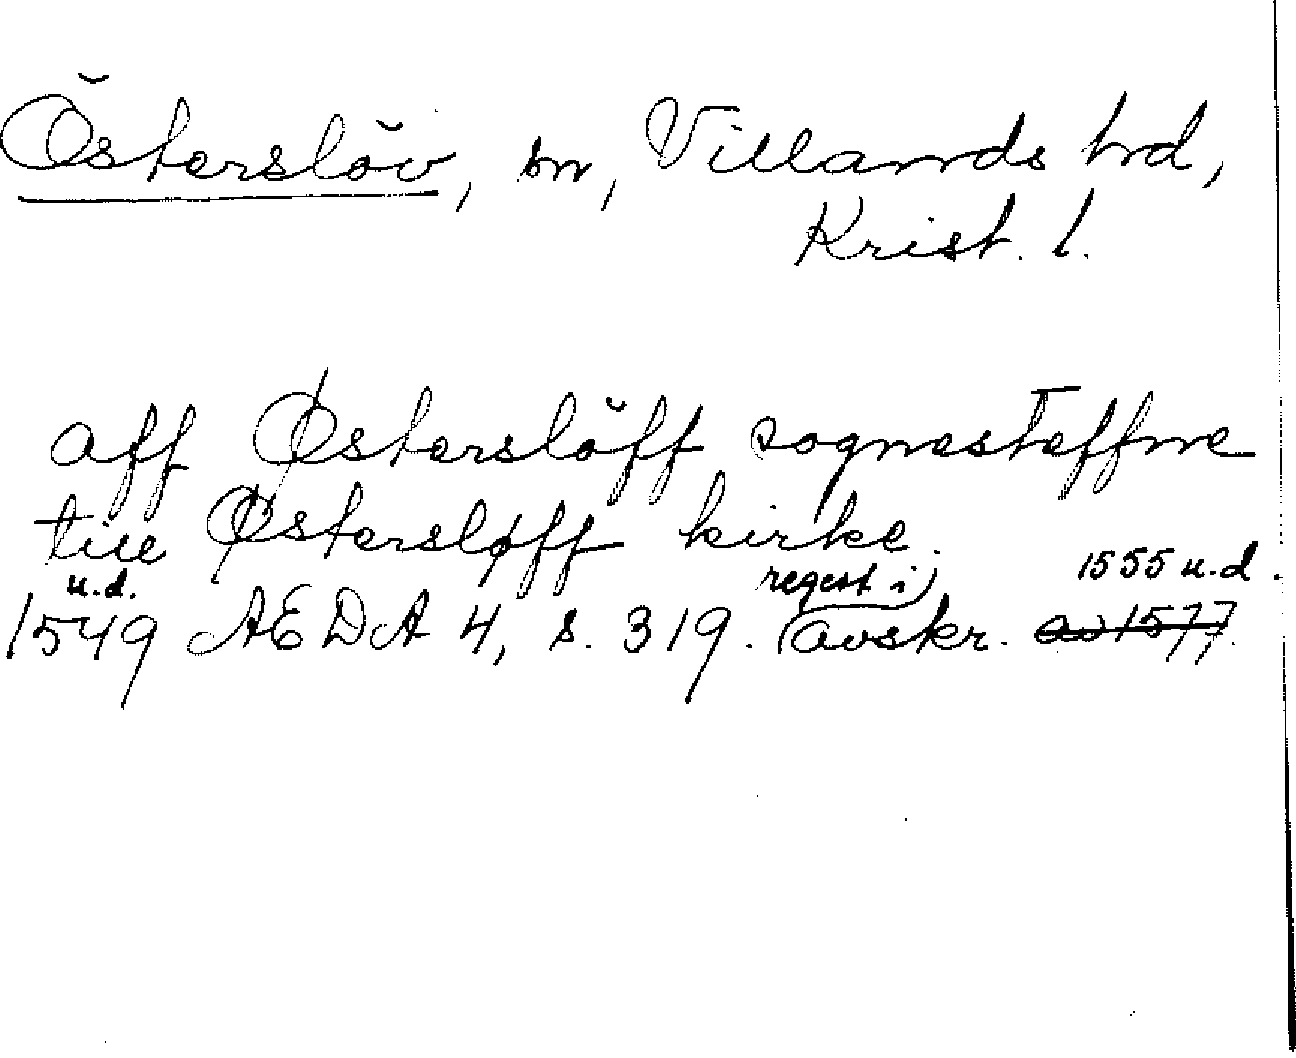 Österslöv, sn, Villands hd,
Krist. l.
aff Østerslöff sognesteffne
till Østersløff kirke.
u.d. regest i 1555 u.d.
1549 AEDA 4, s. 319. (avskr. av 1577.